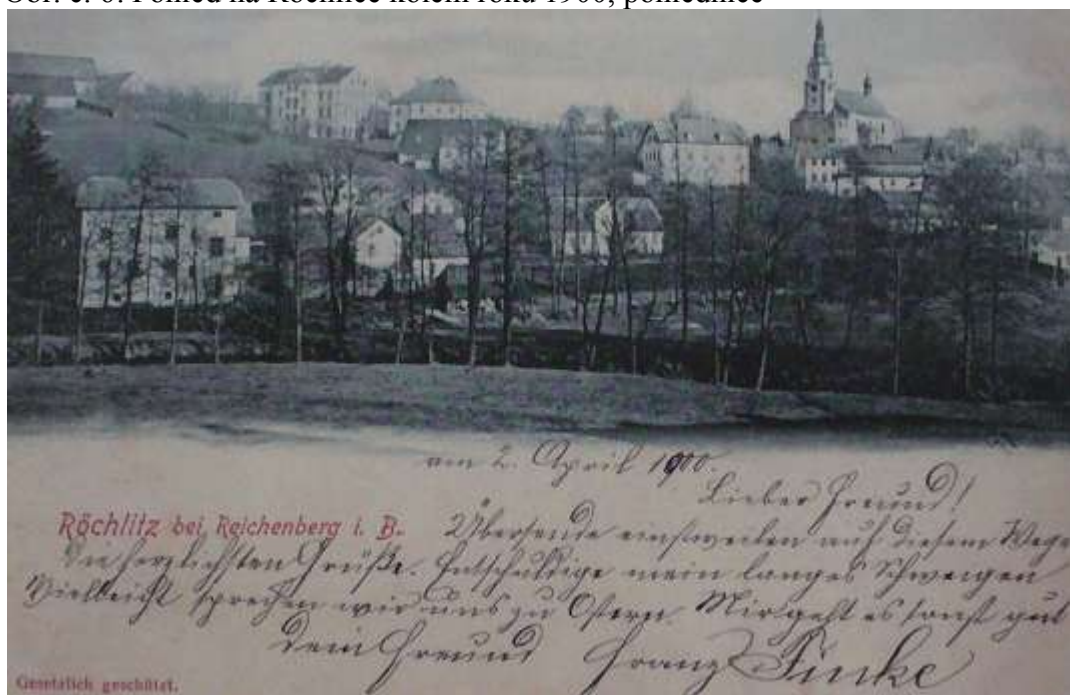 Obr. č. 6: Pohled na Rochlice kolem roku 1900, pohlednice
am 2. April 1900.
Lieber Freund!
Röchlitz bei Reichenberg i. B. Übersende einstweilen auf diesem Wege
die herzlichsten Grüße. Entschuldige mein langes Schweigen
Vielleicht sprechen wir uns zu Ostern. Mir geht es sonst gut
dein Freund Franz Finke
Gesetzlich geschützt.